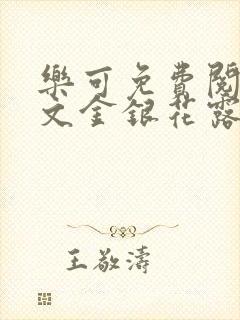 樂可免費閱
文金銀花露
王敬濤